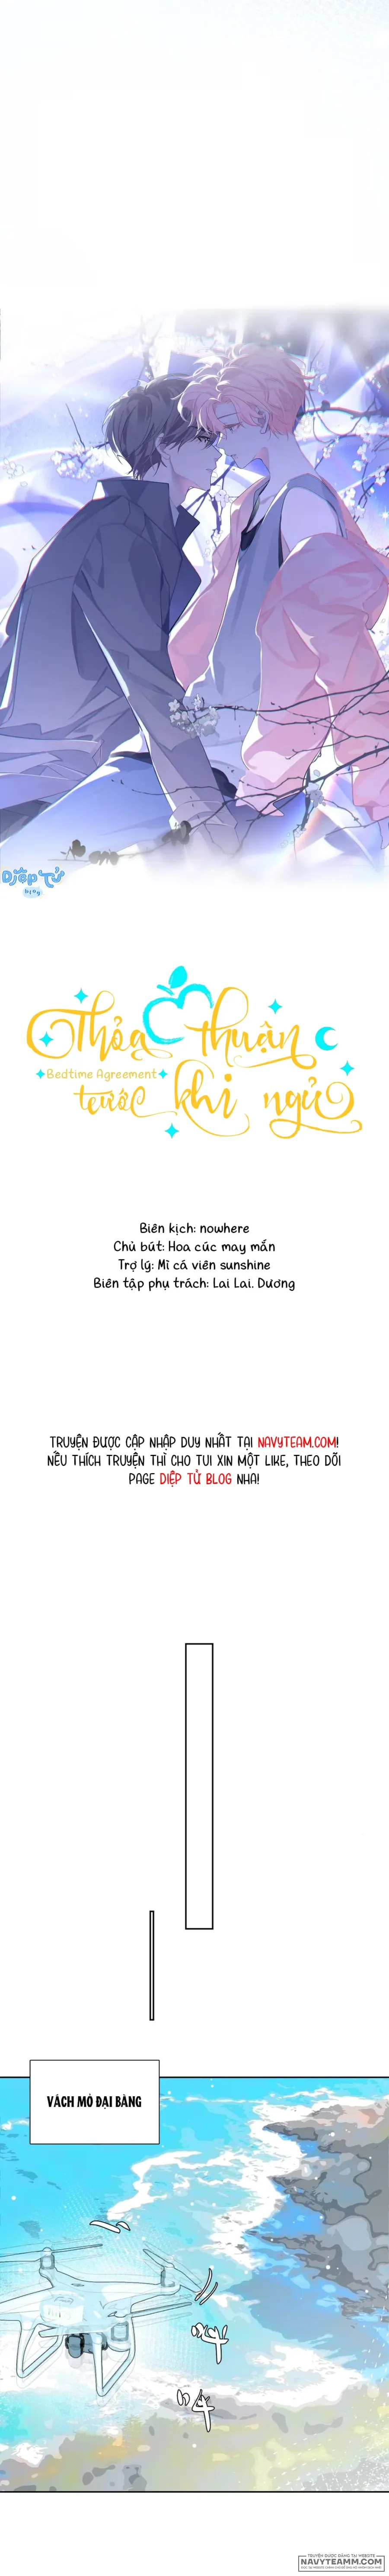 Diệp Tử
blog
Thỏa thuận
Bedtime Agreement
trước khi ngủ
Biên kịch: nowhere
Chủ bút: Hoa cúc may mắn
Trợ lý: Mì cá viên sunshine
Biên tập phụ trách: Lai Lai. Dương
TRUYỆN ĐƯỢC CẬP NHẬP DUY NHẤT TẠI NAVYTEAM.COM!
NẾU THÍCH TRUYỆN THÌ CHO TUI XIN MỘT LIKE, THEO DÕI
PAGE DIỆP TỬ BLOG NHA!
VÁCH MỎ ĐẠI BÀNG
TRUYỆN ĐƯỢC ĐĂNG TẠI WEBSITE
NAVYTEAMM.COM